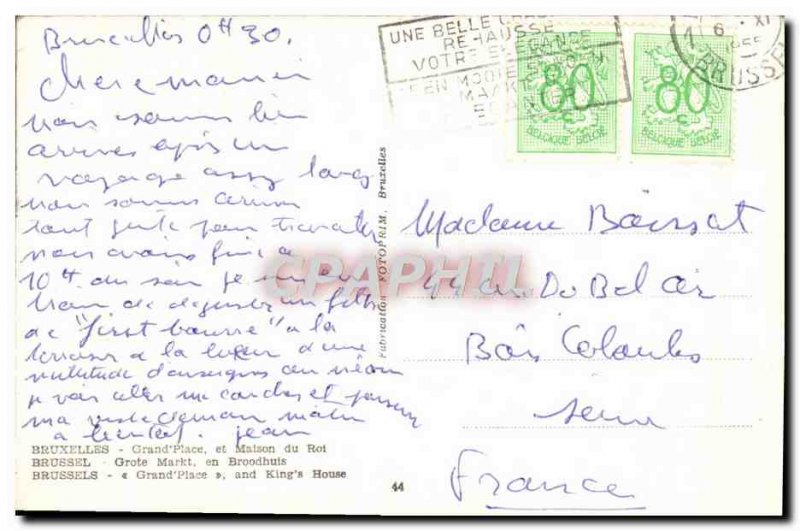 Bruxelles 0H30.
chère maman
nous sommes bien
arrivés après un
voyage assez long
nous sommes arrivés
tout juste pour travailler
nous avons fini à
10H. du soir je suis en
train de déguster un
de "first bourre" à la
terrasse à la lueur d'une
multitude d'enseignes au néon
je vais aller me coucher et
ma demain matin
à bientôt. jean
UNE BELLE
REHAUSSE
VOTRE ELEGANCE
EEN MOOIE
MAAKT
80 c
BELGIQUE BELGIË
80 c
BELGIQUE BELGIË
6 . XI
BRUSSEL
Madame Boissat
44 Du Bel air
Bois Colombes
Seine
France
Fabrication FOTOPRIM, Bruxelles
CPAPHIL
BRUXELLES - Grand'Place, et Maison du Roi
BRUSSEL - Grote Markt, en Broodhuis
BRUSSELS - « Grand'Place », and King's House
44